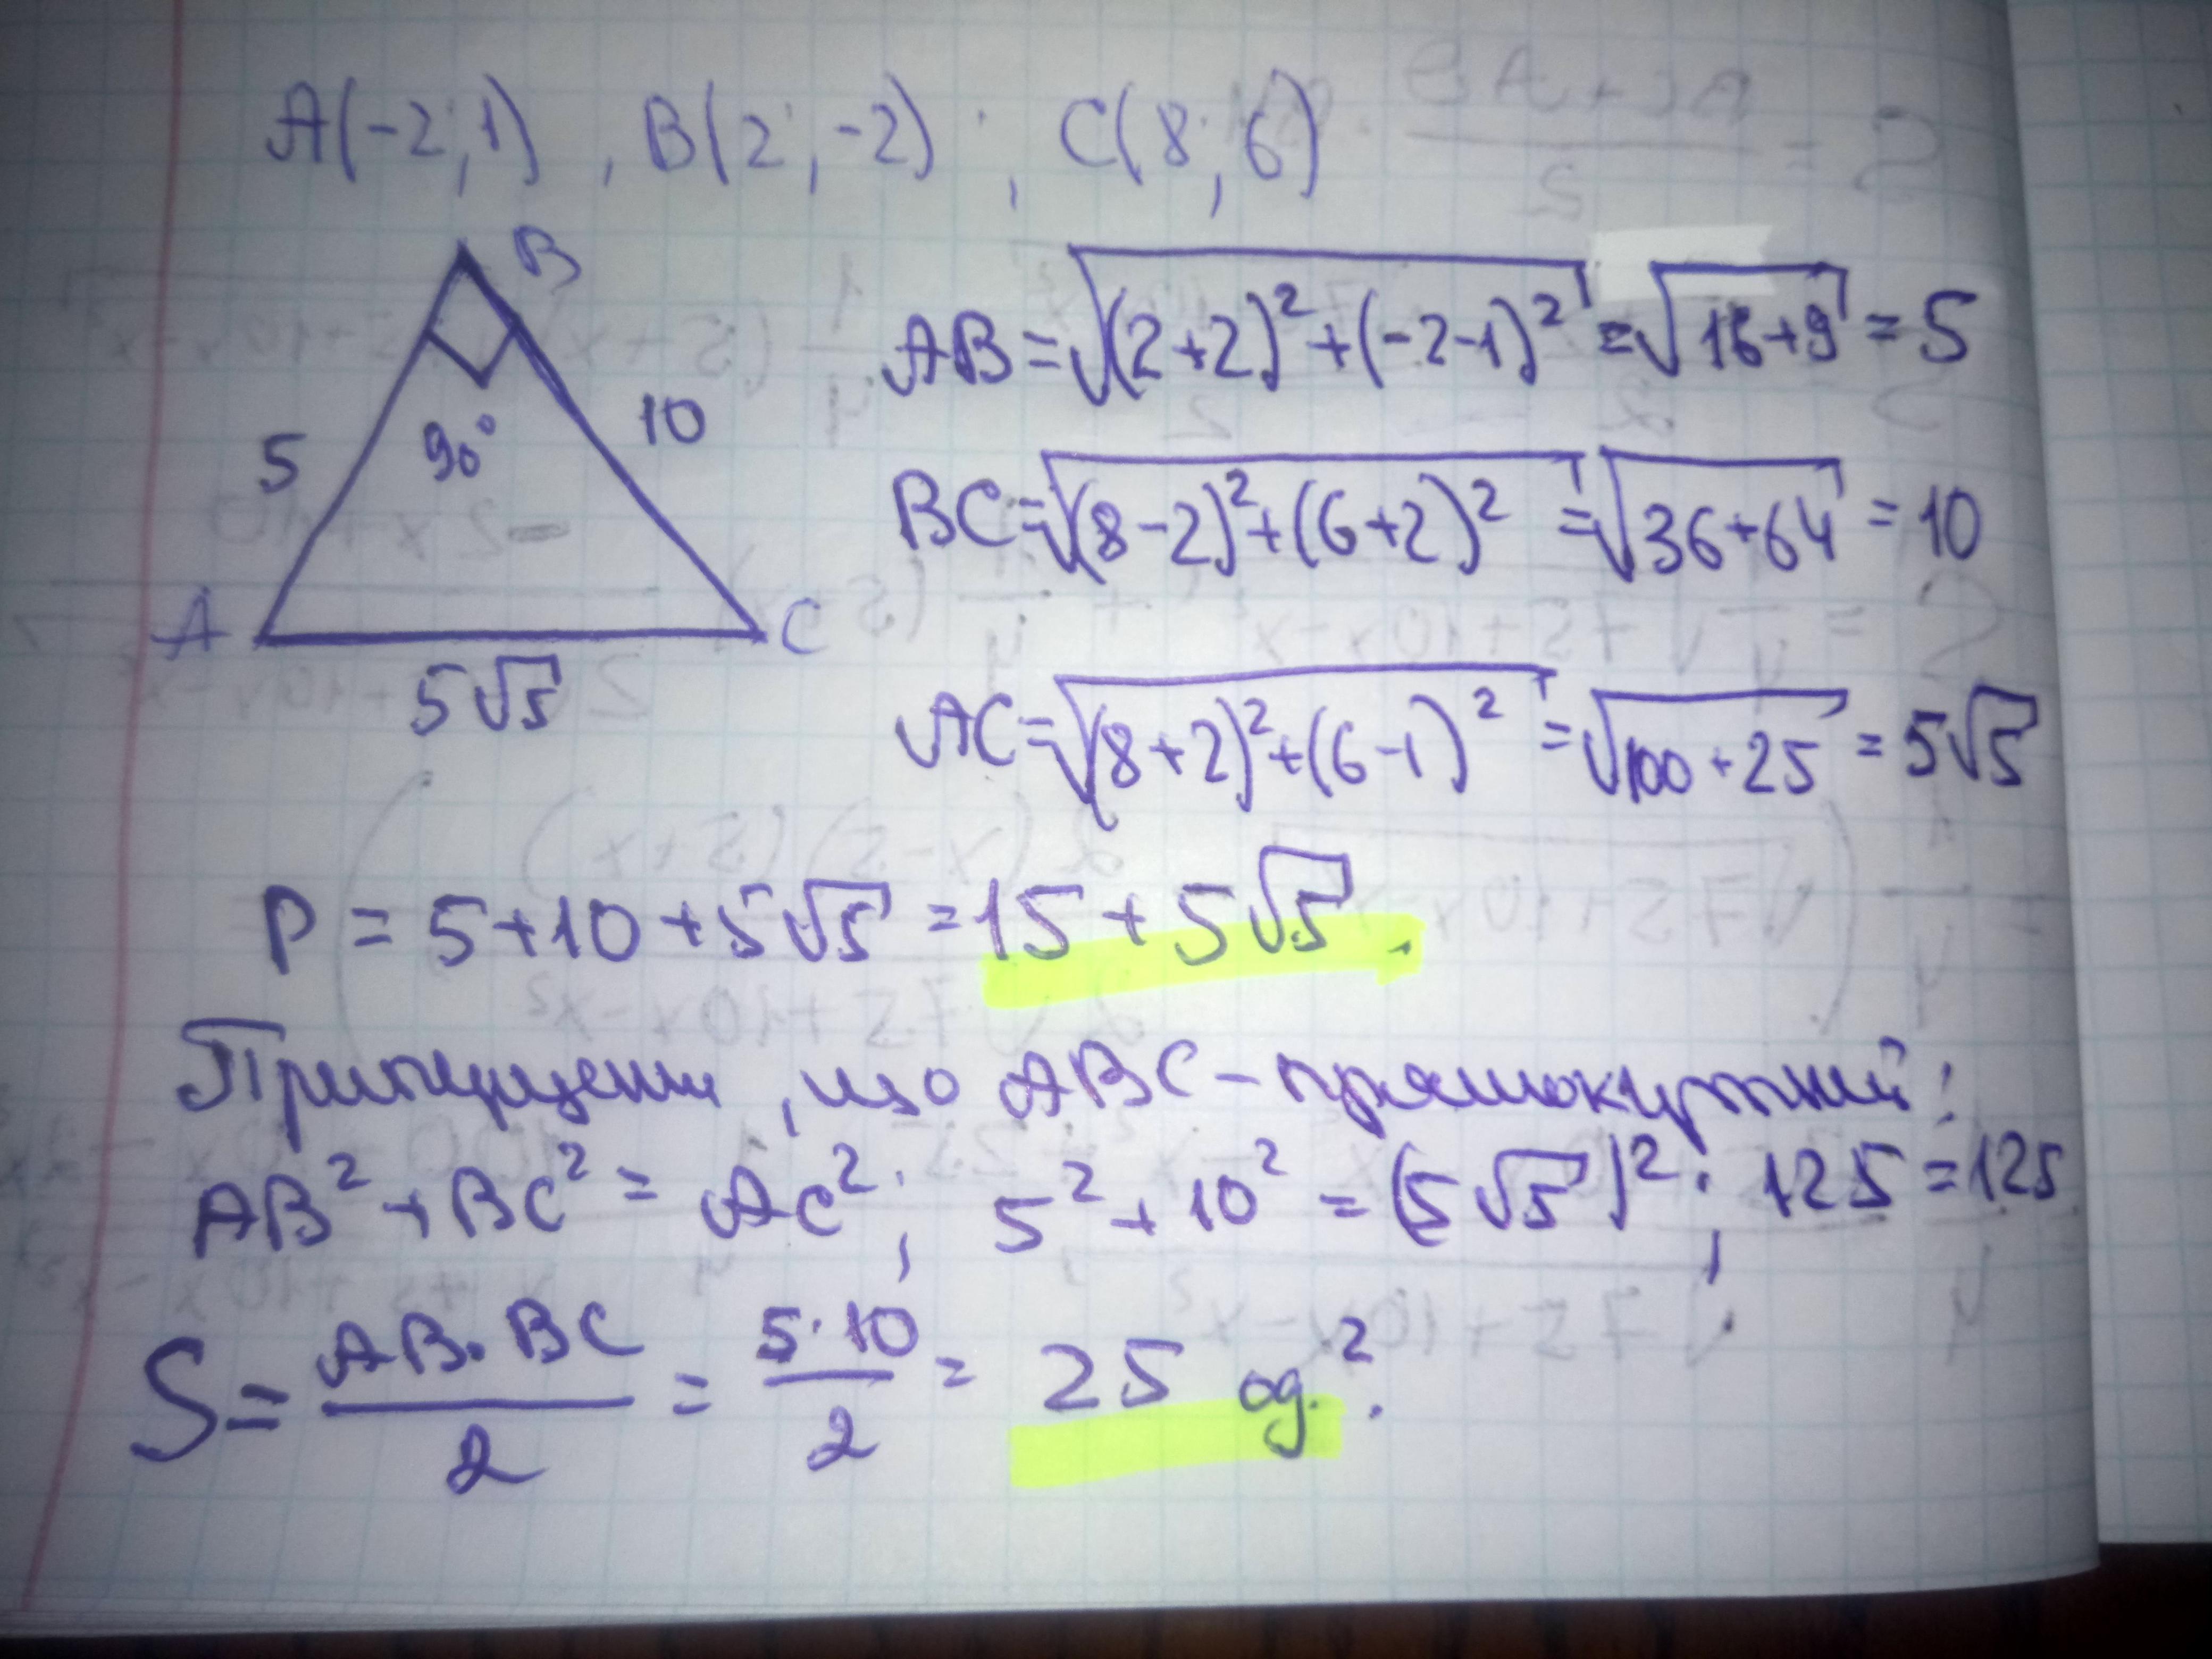 A(-2;1), B(2;-2); C(8;6)
B
AB=√((2+2)²+(-2-1)²)=√(16+9)=5
5
90°
10
BC=√((8-2)²+(6+2)²)=√(36+64)=10
A
C
5√5
AC=√((8+2)²+(6-1)²)=√(100+25)=5√5
P=5+10+5√5=15+5√5.
Припущення, що ABC-прямокутний:
AB²+BC²=AC²; 5²+10²=(5√5)²; 125=125
S=AB·BC/2=5·10/2=25 од.².